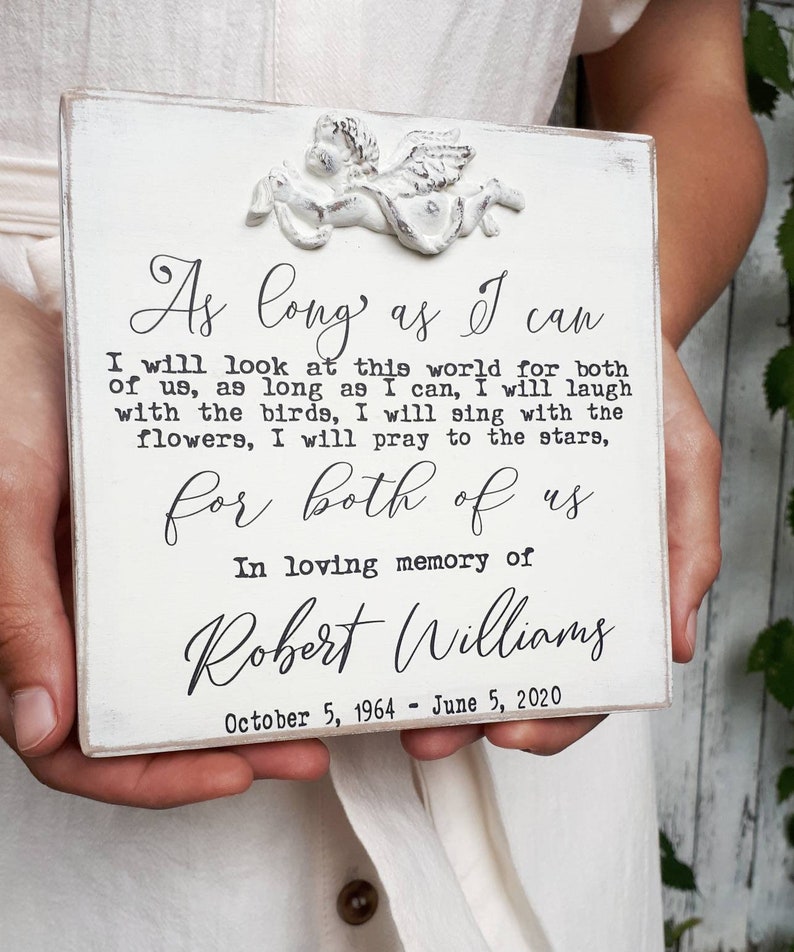 As long as I can
I will look at this world for both
of us, as long as I can, I will laugh
with the birds, I will sing with the
flowers, I will pray to the stars,
for both of us
In loving memory of
Robert Williams
October 5, 1964 - June 5, 2020